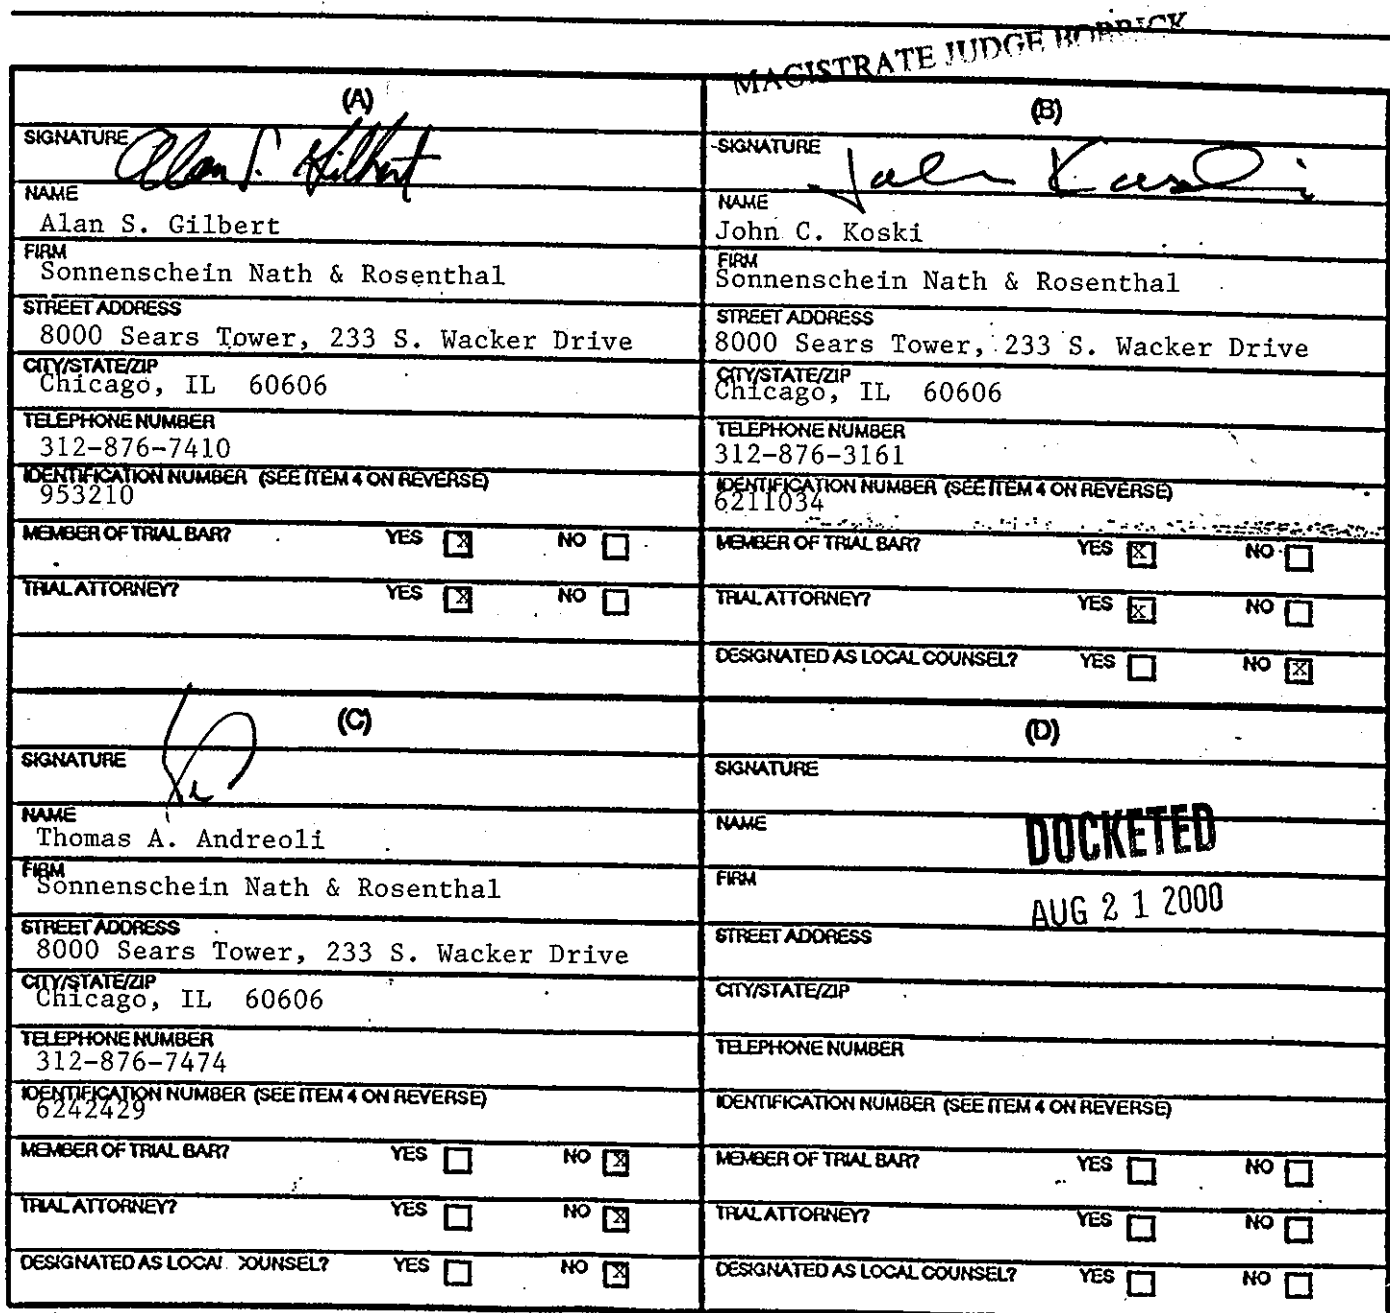 MAGISTRATE JUDGE BOBRICK
(A)
SIGNATURE Alan S. Gilbert
NAME
Alan S. Gilbert
FIRM
Sonnenschein Nath & Rosenthal
STREET ADDRESS
8000 Sears Tower, 233 S. Wacker Drive
CITY/STATE/ZIP
Chicago, IL 60606
TELEPHONE NUMBER
312-876-7410
IDENTIFICATION NUMBER (SEE ITEM 4 ON REVERSE)
953210
MEMBER OF TRIAL BAR? YES X NO
TRIAL ATTORNEY? YES X NO
(B)
SIGNATURE John Koski
NAME
John C. Koski
FIRM
Sonnenschein Nath & Rosenthal
STREET ADDRESS
8000 Sears Tower, 233 S. Wacker Drive
CITY/STATE/ZIP
Chicago, IL 60606
TELEPHONE NUMBER
312-876-3161
IDENTIFICATION NUMBER (SEE ITEM 4 ON REVERSE)
6211034
MEMBER OF TRIAL BAR? YES X NO
TRIAL ATTORNEY? YES X NO
DESIGNATED AS LOCAL COUNSEL? YES NO X
(C)
SIGNATURE
NAME
Thomas A. Andreoli
FIRM
Sonnenschein Nath & Rosenthal
STREET ADDRESS
8000 Sears Tower, 233 S. Wacker Drive
CITY/STATE/ZIP
Chicago, IL 60606
TELEPHONE NUMBER
312-876-7474
IDENTIFICATION NUMBER (SEE ITEM 4 ON REVERSE)
6242429
MEMBER OF TRIAL BAR? YES NO X
TRIAL ATTORNEY? YES NO X
DESIGNATED AS LOCAL COUNSEL? YES NO X
(D)
SIGNATURE
NAME
DOCKETED
FIRM
AUG 21 2000
STREET ADDRESS
CITY/STATE/ZIP
TELEPHONE NUMBER
IDENTIFICATION NUMBER (SEE ITEM 4 ON REVERSE)
MEMBER OF TRIAL BAR? YES NO
TRIAL ATTORNEY? YES NO
DESIGNATED AS LOCAL COUNSEL? YES NO